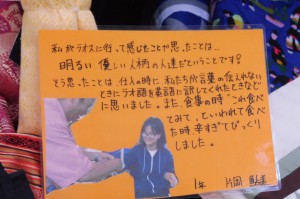 私がラオスに行って感じたことや思ったことは…
明るい優しい人柄の人達だということです!
そう思ったことは 仕入の時に、私たちが言葉の伝えれない
ときにラオ語を英語に訳してくれたときなど
に思いました。また、食事の時"これ食べ
てみて"といわれて食べ
た時辛すぎてびっくり
しました。
1年 片岡